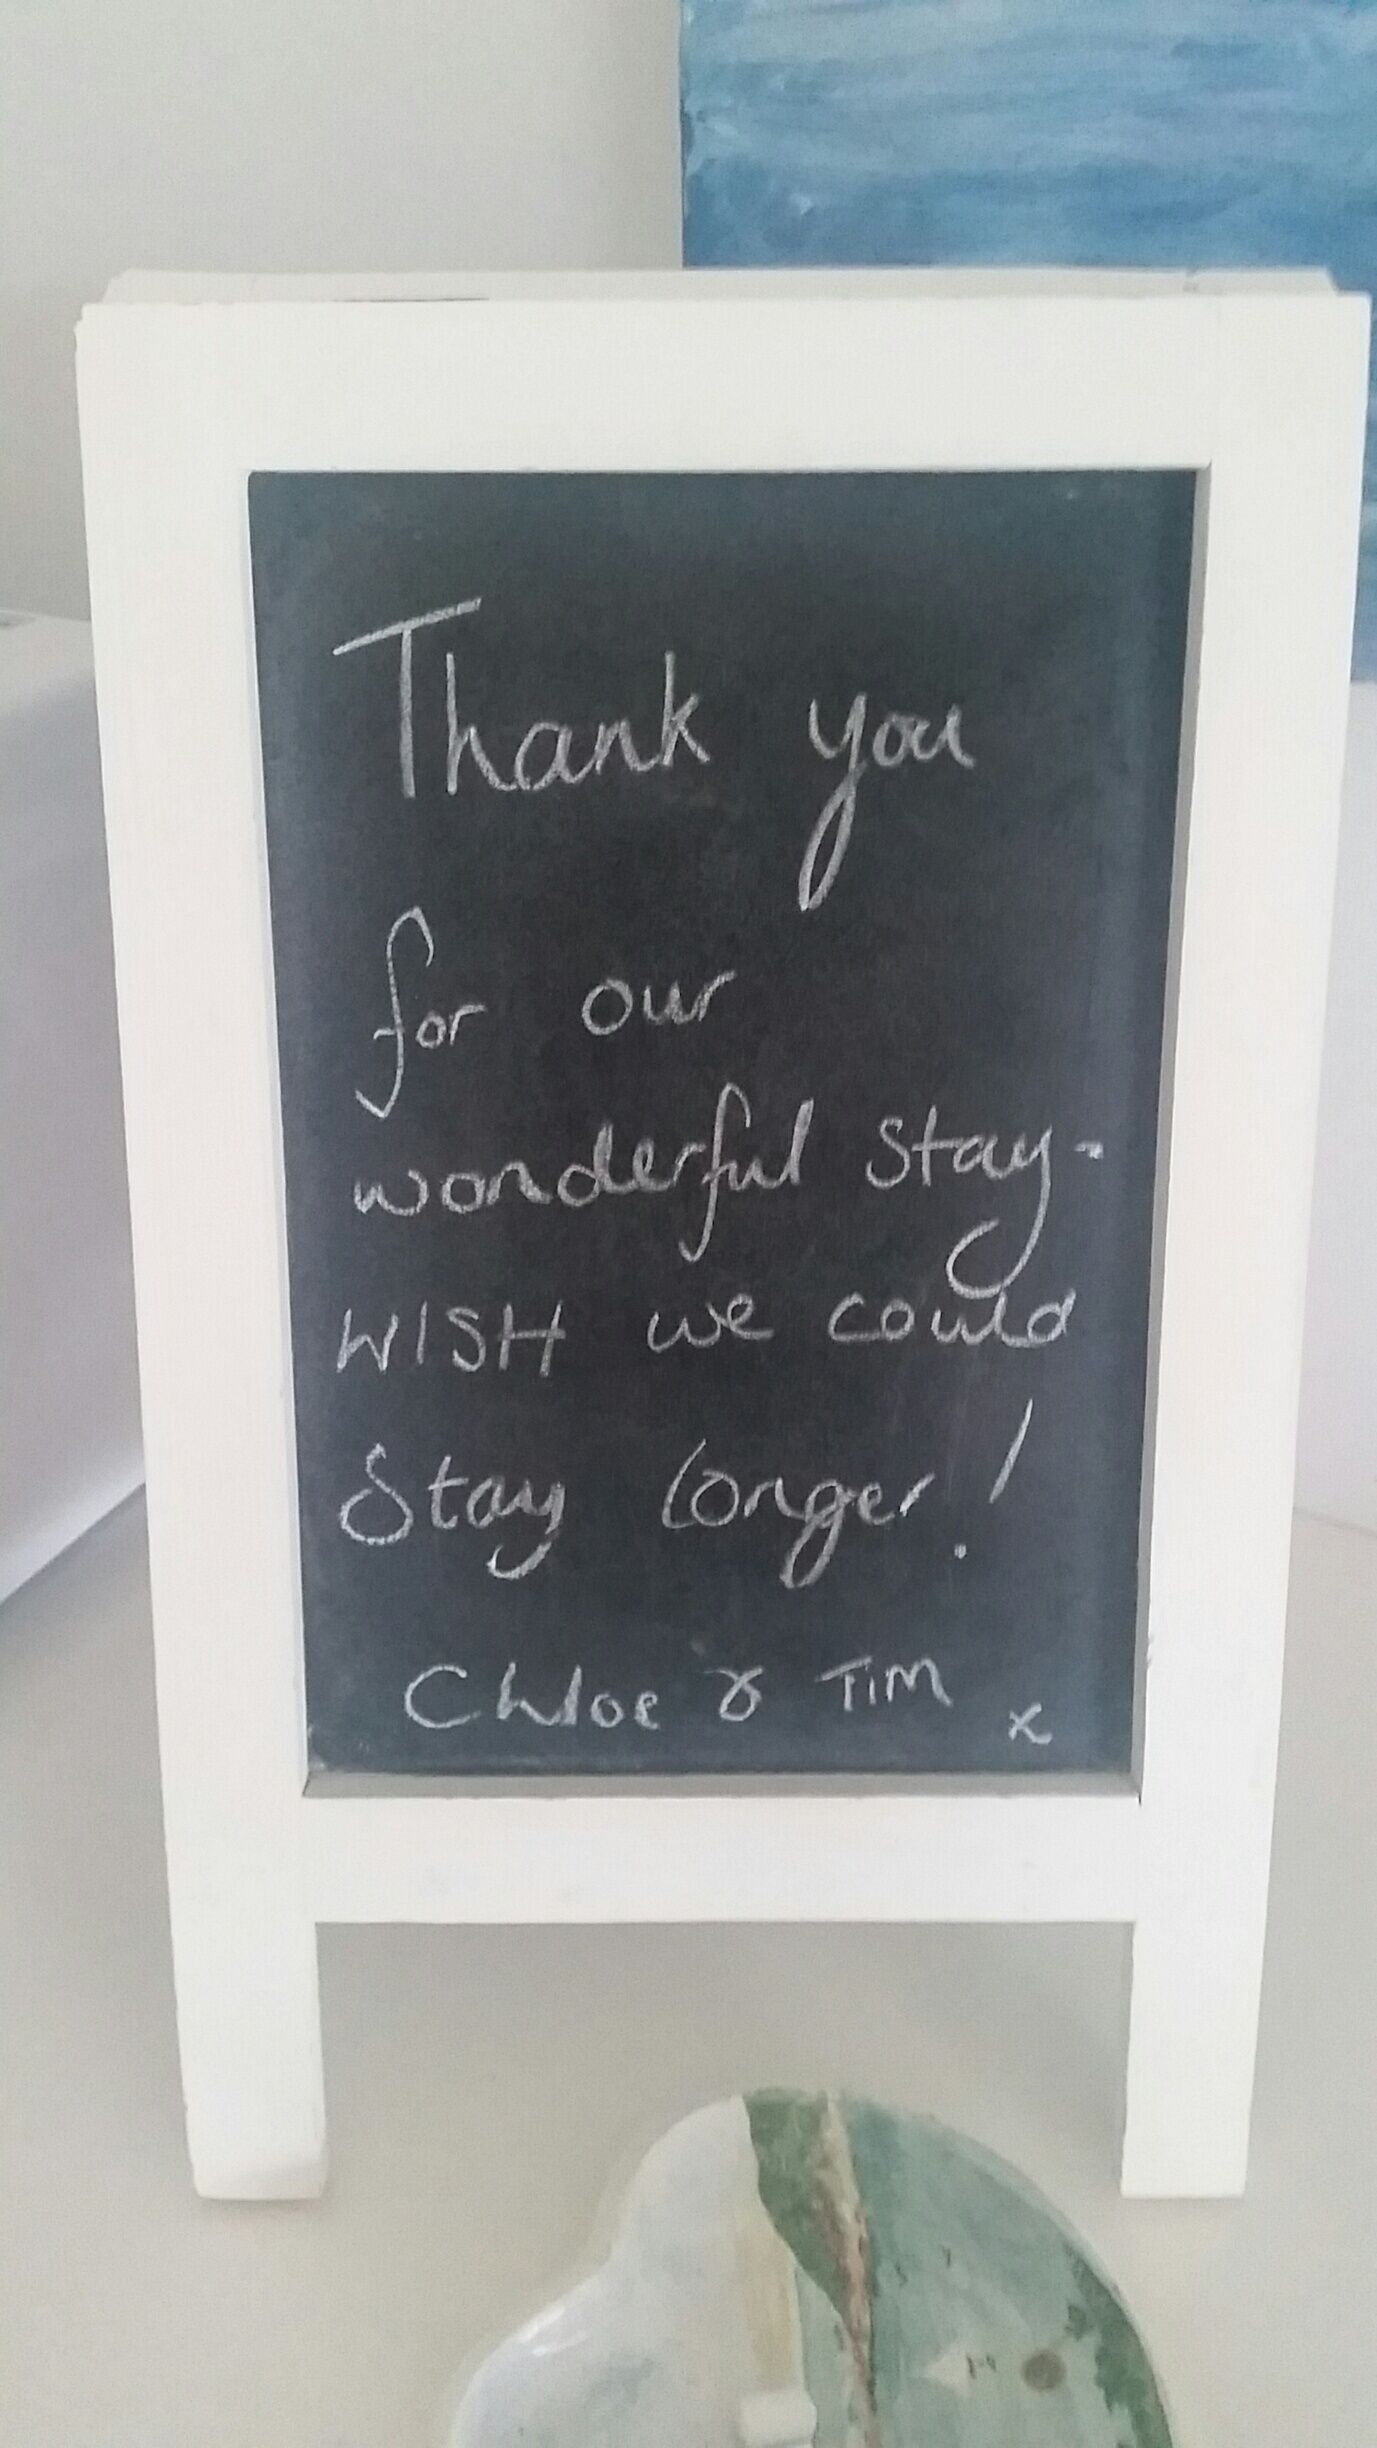 Thank you
for our
wonderful stay-
WISH we could
Stay longer!
Chloe & TIM x